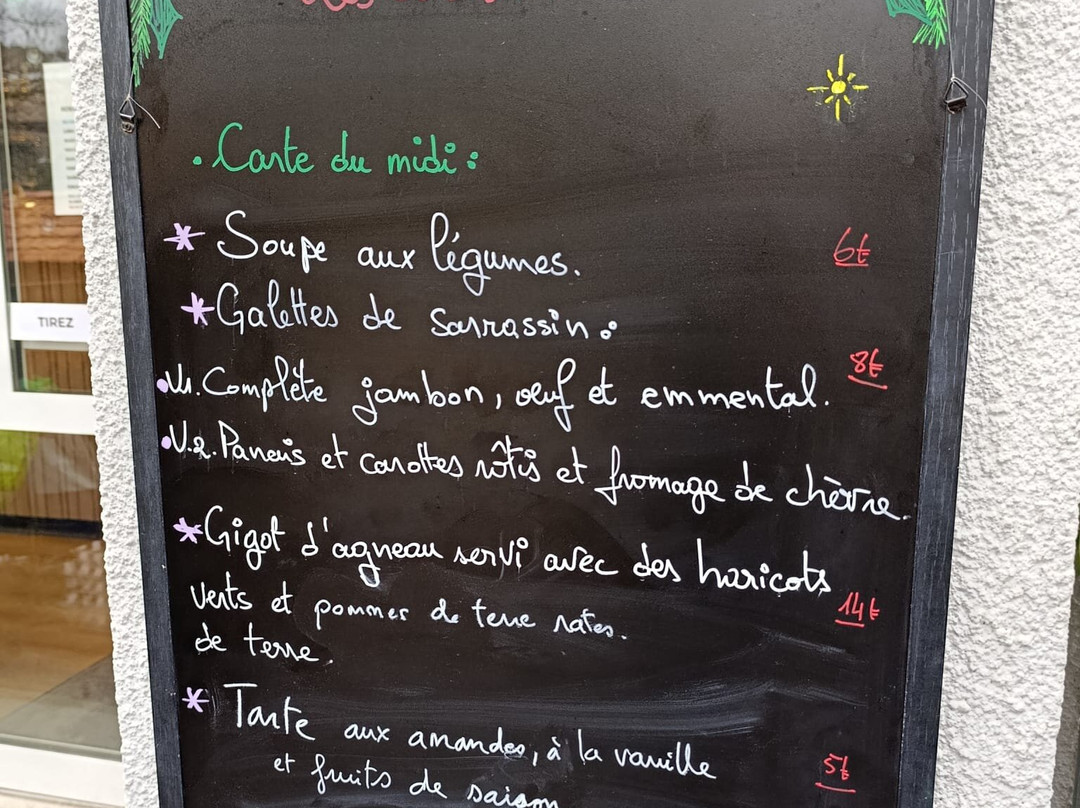 . Carte du midi :
* Soupe aux légumes. 6€
* Galettes de sarrassin :
.V1. Complète jambon, œuf et emmental. 8€
.V.2. Panais et carottes rôtis et fromage de chèvre.
* Gigot d'agneau servi avec des haricots
verts et pommes de terre rates. 14€
de terre.
* Tarte aux amandes, à la vanille
et fruits de saison 5€
TIREZ